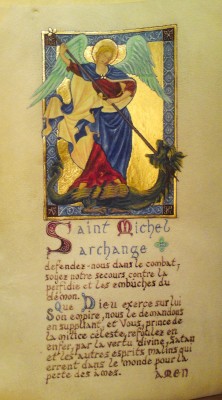 Saint Michel
archange
défendez-nous dans le combat,
soyez notre secours contre la
perfidie et les embûches du
démon.
Que Dieu exerce sur lui
Son empire, nous le demandons
en suppliant, et Vous, prince de
la milice céleste, refoulez en
enfer, par la vertu divine, Satan
et les autres esprits malins qui
errent dans le monde pour la
perte des âmes. AMEN